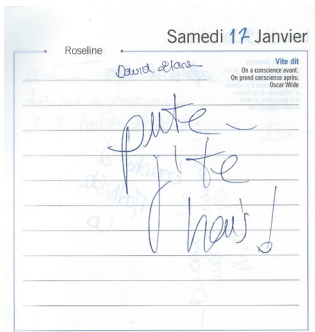 Samedi 17 Janvier
Roseline
Vite dit
On a conscience avant.
On prend conscience après.
Oscar Wilde
David
pute_
j'te
hais!